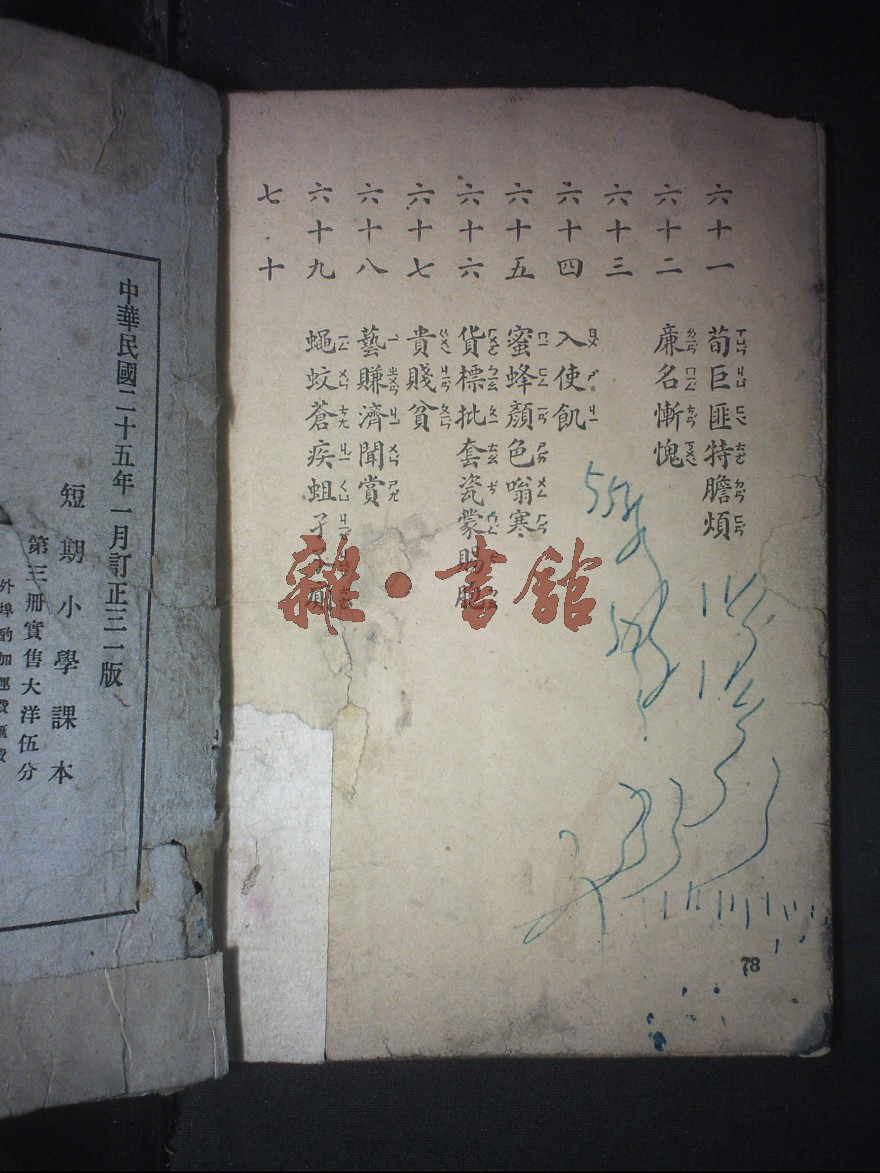 六十一 荀巨匪特膽煩
六十二 廉名慚愧
六十三
六十四 入使飢
六十五 蜜蜂顏色嗡寒
六十六 貨標批套瓷蒙賜
六十七 貴賤貧
六十八 藝賺濟聞賞
六十九 蠅蚊蒼疾蛆孑
七十
78
中華民國二十五年一月訂正三一版
短期小學課本
第三冊實售大洋伍分
外埠酌加運費匯費
雜·書館